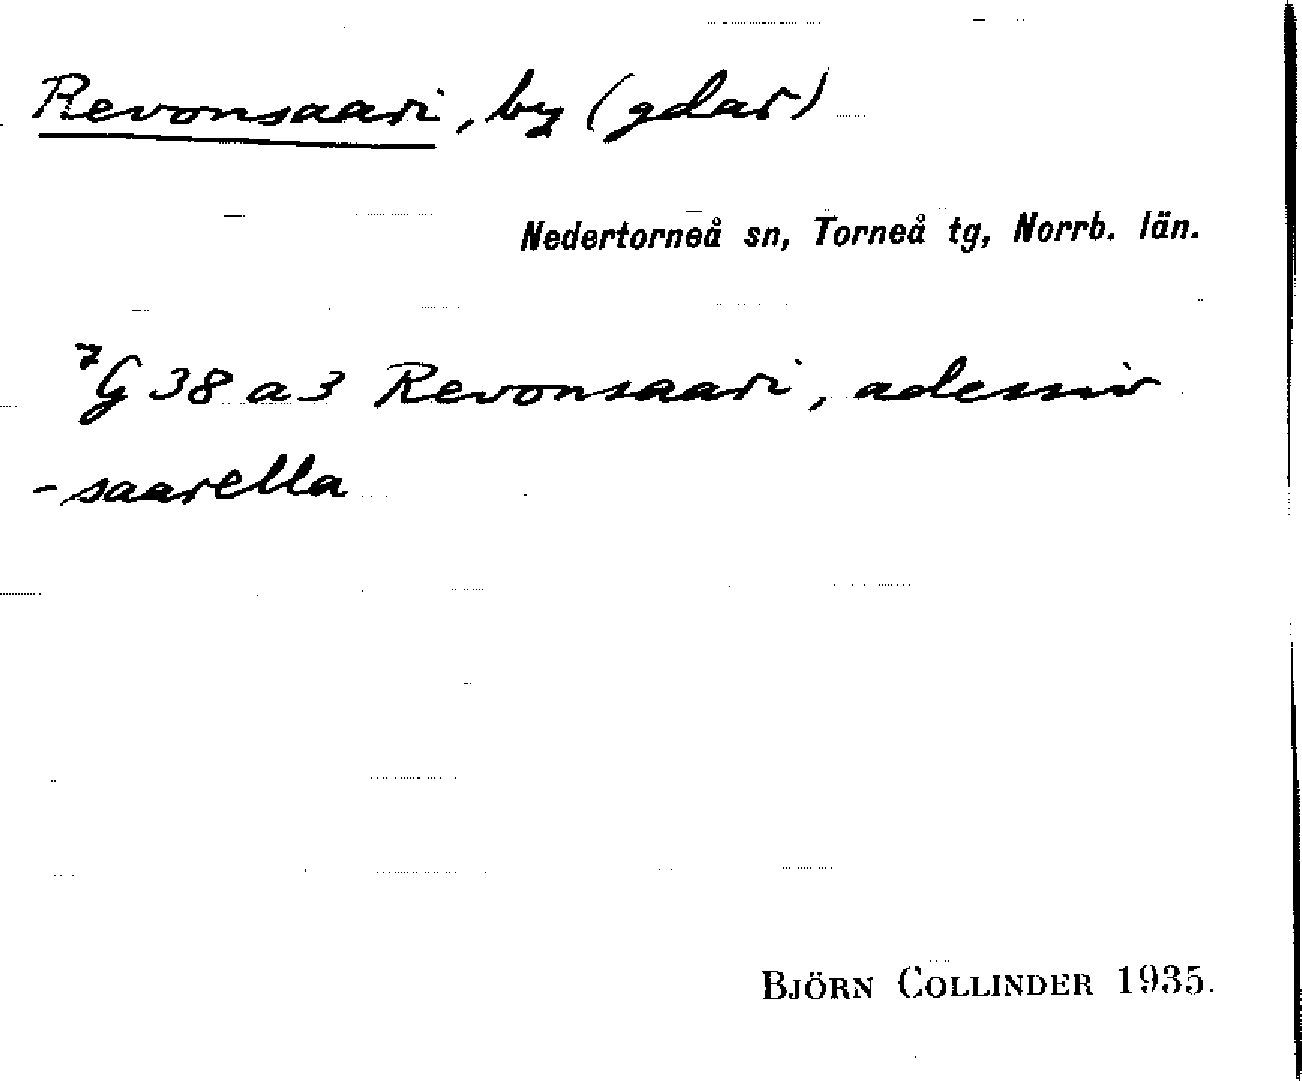 Revonsaari, by (gdar)
Nedertorneå sn, Torneå tg, Norrb. län.
⁷G 38 a 3 Revonsaari, adessiv
-saarella
BJÖRN COLLINDER 1935.